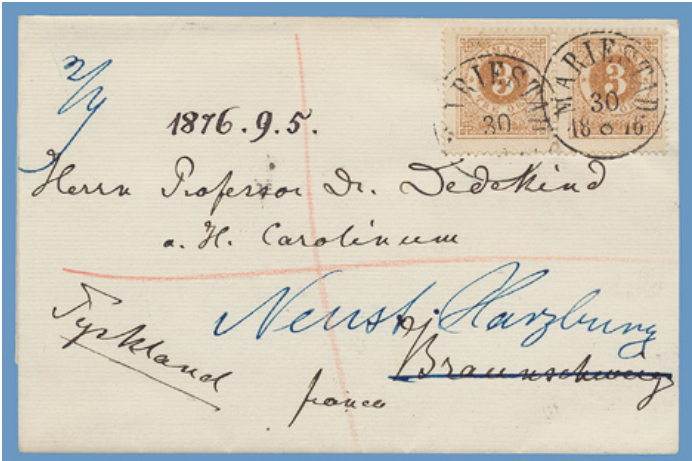 MARIESTAD
30
MARIESTAD
30
18 8 76
3
3
1876.9.5.
Herrn Professor Dr. Dedekind
a. H. Carolinum
Neust. Harzburg
Tyskland
Braunschweig
franco